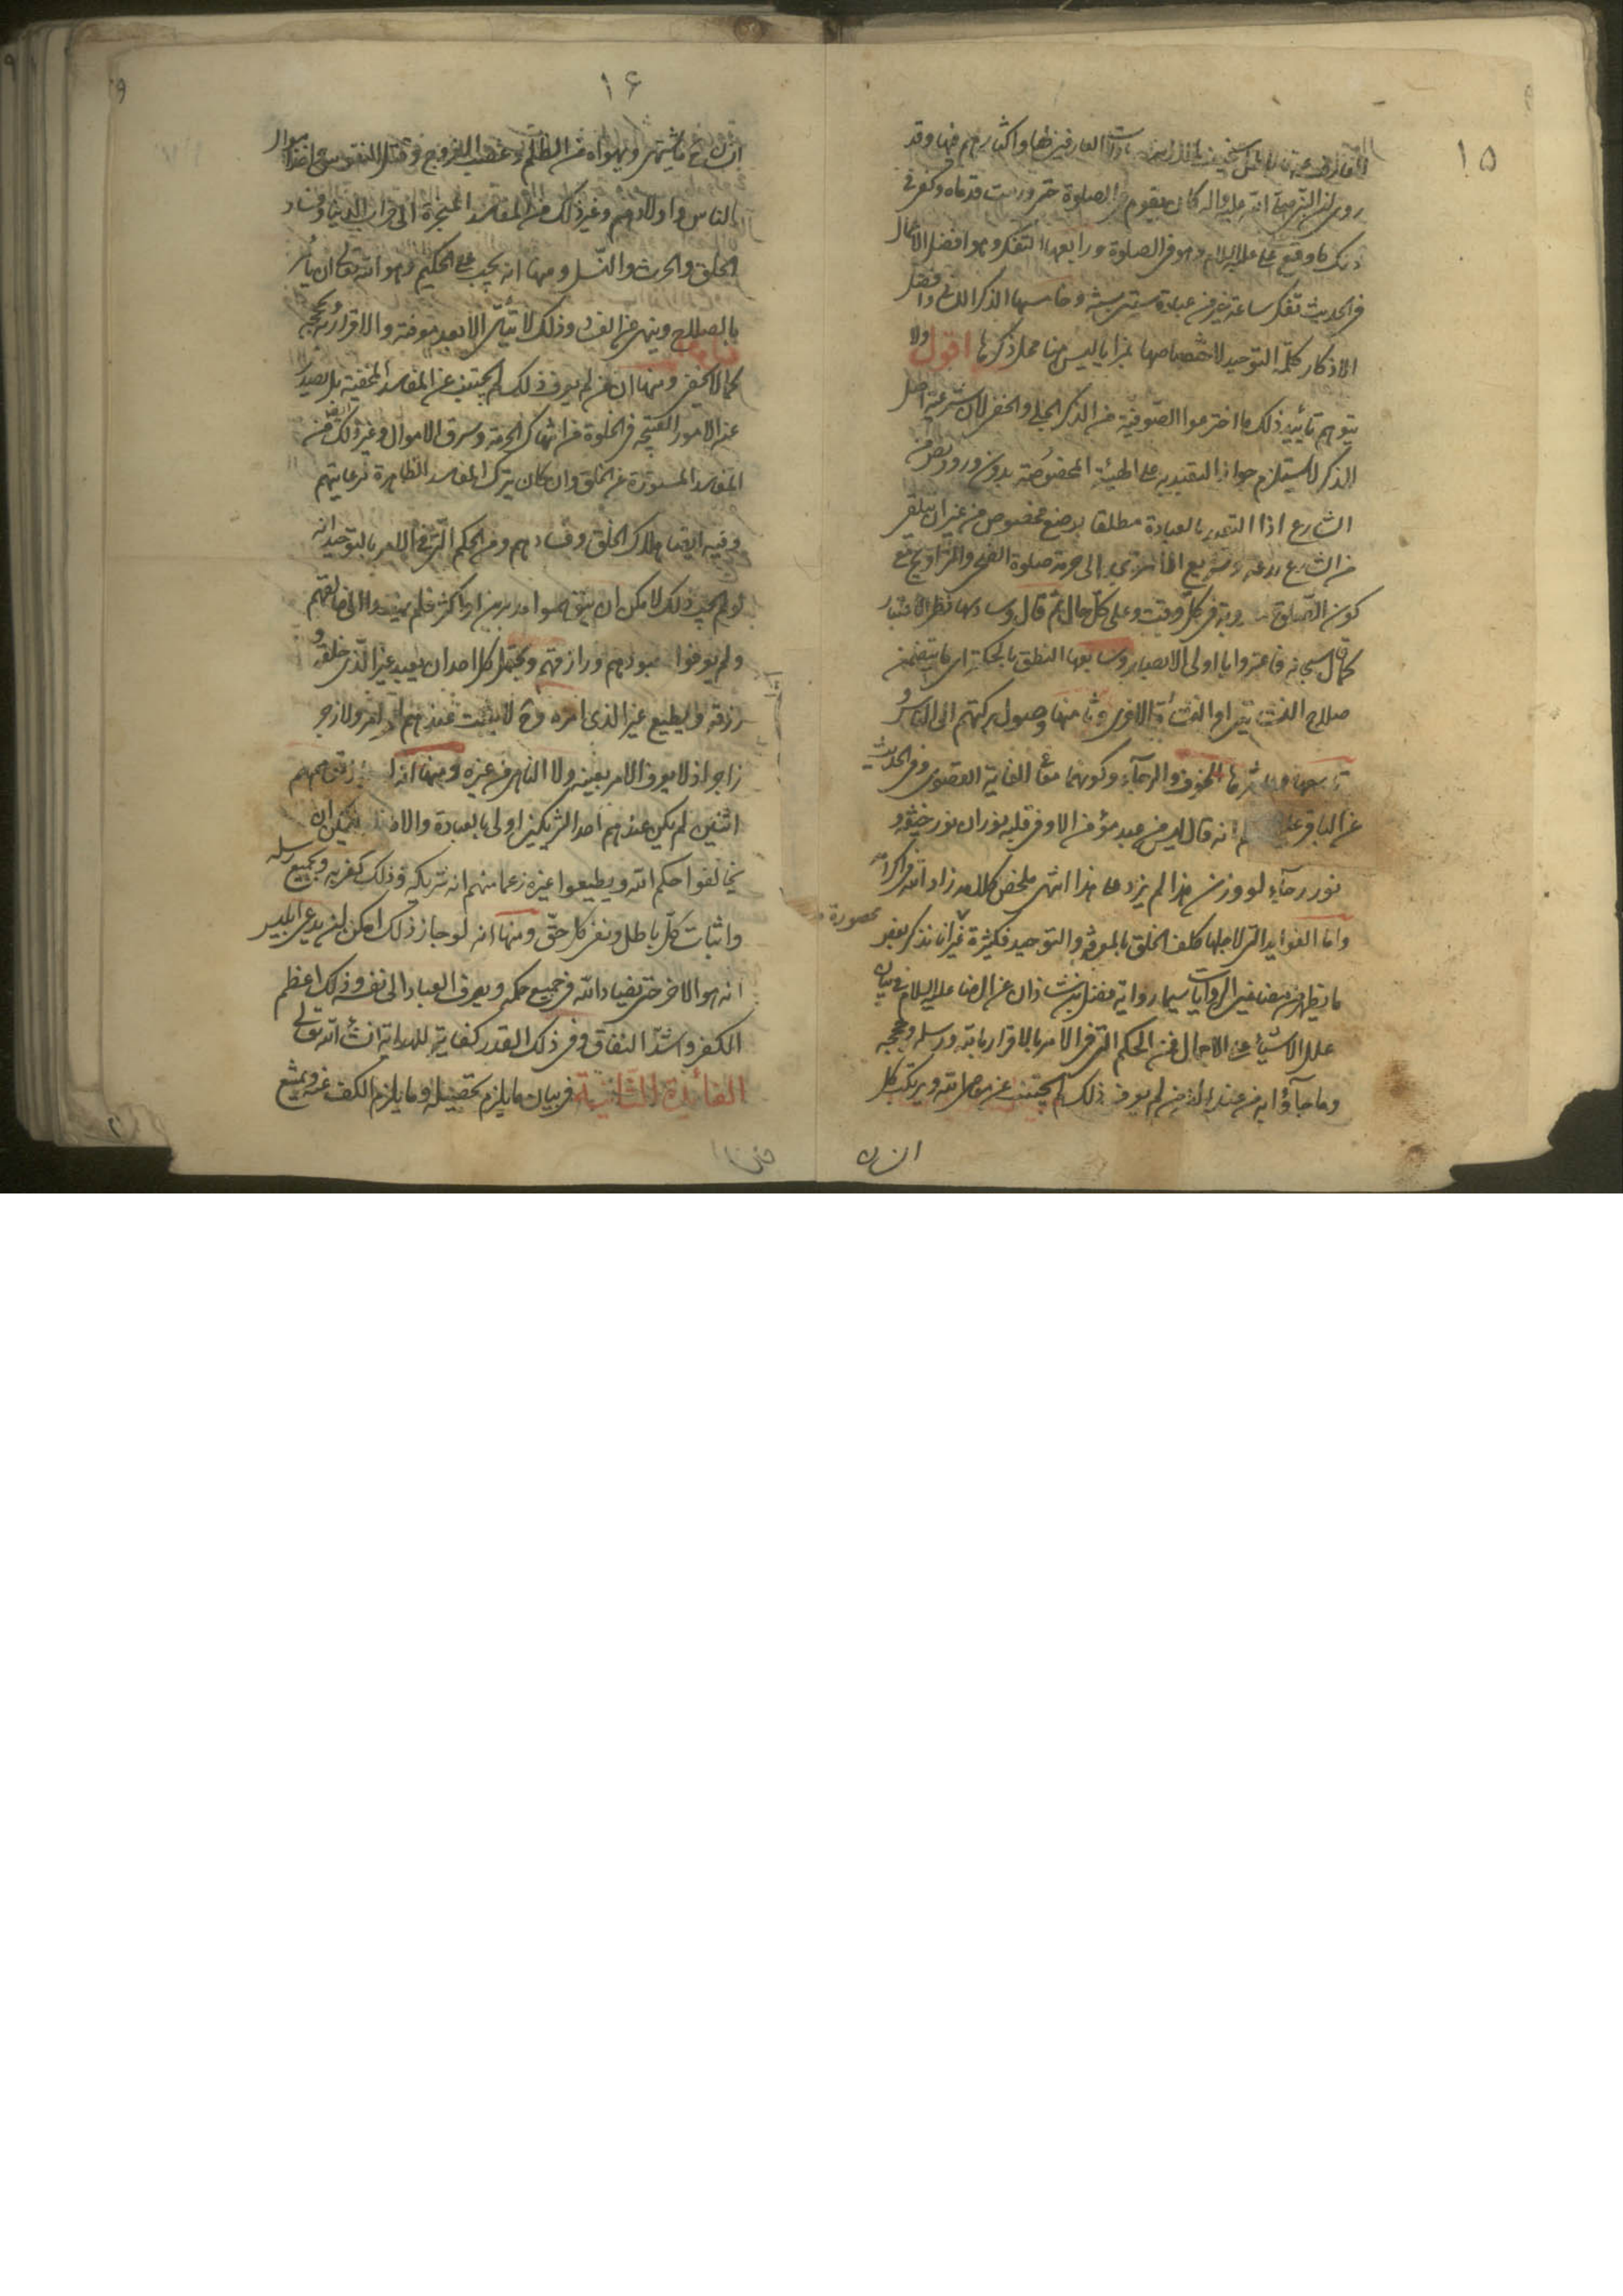 ١٥
روى ان النبي صلى الله عليه واله كان يقوم في الصلوة حتى ورمت قدماه وكفى في
ذلك ما وقع على عليه السلام وهو في الصلوة ورابعها التفكر وهو افضل الاعمال
في الحديث تفكر ساعة خير من عبادة ستين سنة وخامسها الذكر وافضل
الاذكار كلمة التوحيد لاختصاصها بمزايا ليس هنا محل ذكرها اقول ولا
يتوهم تأييد ذلك ما اخترعوا الصوفية من الذكر الجلي والخفي لان شرعية اصل
الذكر لا يستلزم جواز التقييد به على الهيئة المخصوصة بدون ورود نص من
الشارع اذا التعبد بالعبادة مطلقا بوضع مخصوص من غير ان يتلقى
من الشارع بدعة وتشريع الا ترى الى حرمة صلوة الضحى والتراويح مع
كون الصلوة في كل وقت وعلى كل حال ثم قال وسادسها نظر الاعتبار
كما قال سبحانه فاعتبروا يا اولى الابصار وسابعها النطق بالحكمة اى ما يتضمن
صلاح النشأتين او النشأة الاخرى وثامنها وصول بركتهم الى الناس
تاسعها وعاشرها الخوف والرجاء وكونهما معا الغاية القصوى وفى الحديث
عن الباقر انه قال ليس من عبد مؤمن الا وفى قلبه نوران نور خيفة و
نور رجاء لو وزن هذا لم يزد على هذا انتهى ملخص كلامه زاد الله في اكرامه
محصورة
واما الفوايد التي لاجلها كلف الخلق بالمعرفة والتوحيد فكثيرة غير انا نذكر بعض
ما يظهر من مضامين الروايات سيما رواية فضل بن شاذان عن الرضا عليه السلام في بيان
علل الاشياء على الاجمال فمن الحكم التي في الامر بالاقرار بالله ورسله وحججه
وما جاؤا به من عند الله ان من لم يعرف ذلك لم يجتنب عن معاصى الله ويرتكب كل
انسان
١٦
انسان ما يشتهي ويهواه من الظلم وغصب الفروج وقتل النفوس واخذ اموال
الناس واولادهم وغير ذلك من المفاسد المنجرة الى خراب الدنيا وفساد
الخلق والحرث والنسل ومنها انه يجب على الحكيم وهو الله تعالى ان يأمر
بالصلاح وينهى عن الفساد وذلك لا يتأتى الا بعد معرفته والاقرار به وبحججه
كما لا يخفى ومنها ان من لم يعرف ذلك لم يجتنب عن المفاسد المخفية بل يصدر
عنه الامور القبيحة في الخلوة من انتهاك الحرمة وسرق الاموال وغير ذلك من
المفاسد المستورة عن الخلق وان كان يترك المفاسد الظاهرة لرعايتهم
وفيه ايضا هلاك الخلق وفسادهم ومن الحكم التي في الامر بالتوحيد انه
لو لم يجب ذلك لامكن ان يتوهموا مدبرين او اكثر فلم يهتدوا الى خالقهم
ولم يعرفوا معبودهم ورازقهم ويحتمل كل احد ان يعبد غير الذي خلقه و
رزقه ويطيع غير الذى امره وح لا يثبت عندهم امر ولا زجر
زاجر اذ لا يعرف الامر بعينه ولا الناهى من غيره ومنها انه
اثنين لم يكن عندهم احد الشريكين اولى بالعبادة يمكن ان
يخالفوا حكم الله ويطيعوا غيره زعما منهم انه شريكه وذلك كفر به وبجميع رسله
واثبات كل باطل ونفى كل حق ومنها انه لو جاز ذلك امكن لن يدعى ابليس
انه هو الاخر حتى يضاد الله في جميع حكمه ويصرف العباد الى نفسه وذلك اعظم
الكفر واشد النفاق وفى ذلك القدر كفاية للدراية انشاء الله تعالى
الفائدة الثانية في بيان ما يلزم تحصيله وما يلزم الكف عنه ويمتنع